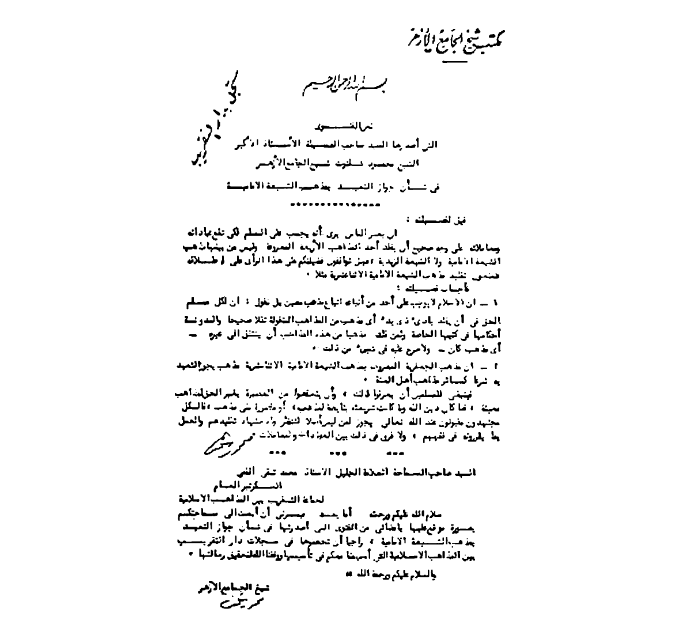 مكتب شيخ الجامع الأزهر
بسم الله الرحمن الرحيم
سجل بدار التقريب
نص الفتوى
التى أصدرها السيد صاحب الفضيلة الأستاذ الأكبر
الشيخ محمود شلتوت شيخ الجامع الأزهر
فى شأن جواز التعبد بمذهب الشيعة الامامية
قيل لفضيلته :
ان بعض الناس يرى أنه يجب على المسلم لكى تقع عباداته
ومعاملاته على وجه صحيح أن يقلد أحد المذاهب الأربعة المعروفة وليس من بينها مذهب
الشيعة الامامية ولا الشيعة الزيدية فهل توافقون فضيلتكم على هذا الرأى على اطلاقه
فتمنعون تقليد مذهب الشيعة الامامية الاثنا عشرية مثلا ؟
فأجاب فضيلته :
١ – ان الاسلام لا يوجب على أحد من أتباعه اتباع مذهب معين بل نقول : ان لكل مسلم
الحق فى أن يقلد بادئ ذى بدء أى مذهب من المذاهب المنقولة نقلا صحيحا والمدونة
أحكامها فى كتبها الخاصة ولمن قلد مذهبا من هذه المذاهب أن ينتقل الى غيره –
أى مذهب كان – ولا حرج عليه فى شىء من ذلك ٠
٢ – ان مذهب الجعفرية المعروف بمذهب الشيعة الامامية الاثنا عشرية مذهب يجوز التعبد
به شرعا كسائر مذاهب أهل السنة ٠
فينبغى للمسلمين أن يعرفوا ذلك ، وأن يتخلصوا من العصبية بغير الحق لمذاهب
معينة ، فما كان دين الله وما كانت شريعته بتابعة لمذهب ، أو مقصورة على مذهب ، فالكل
مجتهدون مقبولون عند الله تعالى يجوز لمن ليس أهلا للنظر والاجتهاد تقليدهم والعمل
بما يقررونه فى فقههم ، ولا فرق فى ذلك بين العبادات والمعاملات ٠
محمود شلتوت
السيد صاحب السماحة العلامة الجليل الاستاذ محمد تقى القمى
السكرتير العام
لجماعة التقريب بين المذاهب الاسلامية
سلام الله عليكم ورحمته أما بعد فيسرنى أن أبعث الى سماحتكم
بصورة موقع عليها بامضائى من الفتوى التى أصدرتها فى شأن جواز التعبد
بمذهب الشيعة الامامية ، راجيا أن تحفظوها فى سجلات دار التقريب
بين المذاهب الاسلامية التى أسهمنا معكم فى تأسيسها ووفقنا الله لتحقيق رسالتها ٠
والسلام عليكم ورحمة الله ٠٠
شيخ الجامع الأزهر
محمود شلتوت